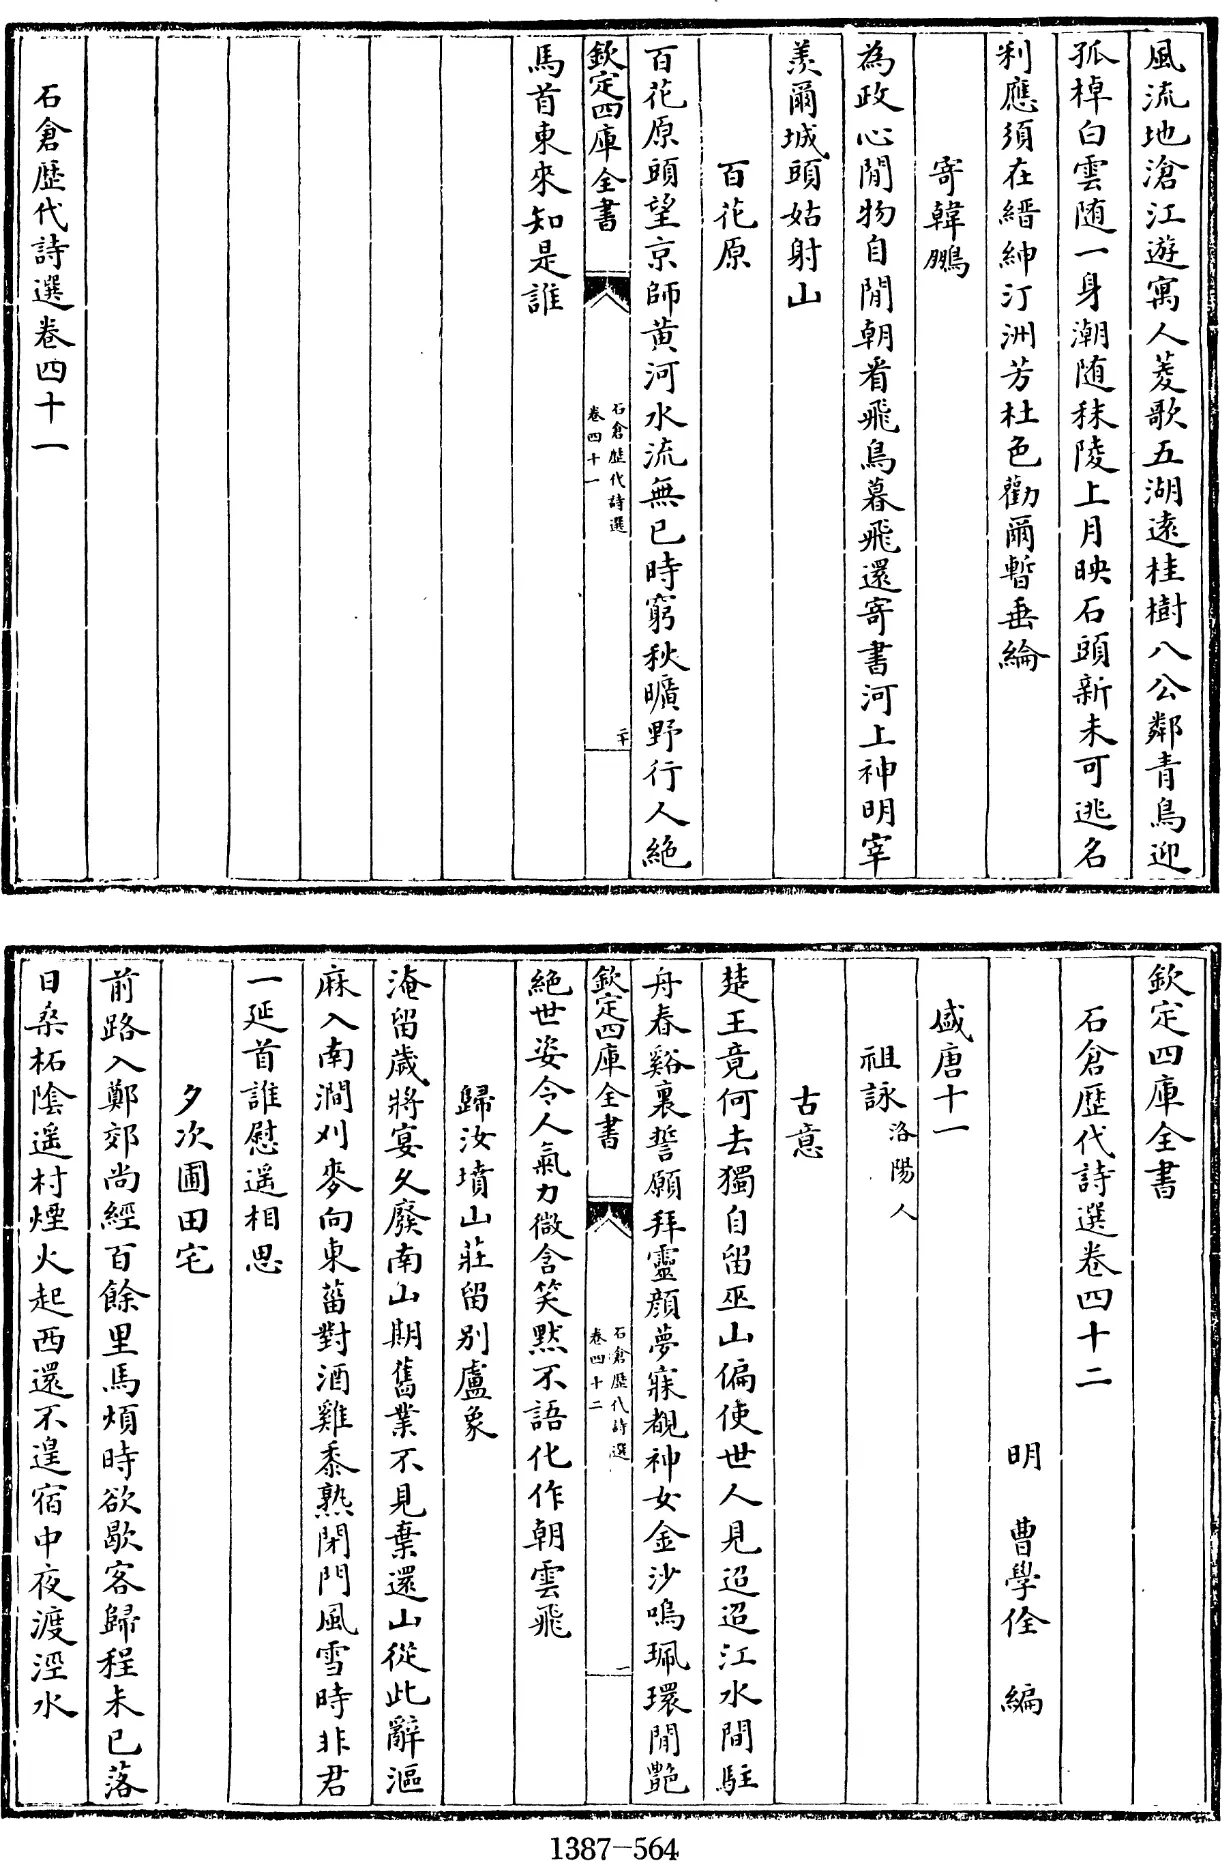 風流地滄江遊寓人菱歌五湖遠桂樹八公鄰青鳥迎
孤棹白雲随一身潮随秣陵上月映石頭新未可逃名
利應須在縉紳汀洲芳杜色勸爾暫垂綸
寄韓鵬
為政心閒物自閒朝看飛鳥暮飛還寄書河上神明宰
羨爾城頭姑射山
百花原
百花原頭望京師黄河水流無已時窮秋曠野行人絶
欽定四庫全書
石倉歴代詩選
卷四十一
二十
馬首東來知是誰
石倉歴代詩選卷四十一
欽定四庫全書
石倉歴代詩選卷四十二
明 曹學佺 編
盛唐十一
祖詠洛陽人
古意
楚王竟何去獨自留巫山偏使世人見迢迢江水間駐
舟春谿裏誓願拜靈顔夢寐覩神女金沙鳴珮環閒艶
欽定四庫全書
石倉歴代詩選
卷四十二
一
絶世姿令人氣力微含笑黙不語化作朝雲飛
歸汝墳山莊留別盧象
淹留歲將宴久廢南山期舊業不見棄還山從此辭漚
麻入南澗刈麥向東菑對酒雞黍熟閉門風雪時非君
一延首誰慰遥相思
夕次圃田宅
前路入鄭郊尚經百餘里馬煩時欲歇客歸程未已落
日桑柘陰遥村煙火起西還不遑宿中夜渡涇水
1387-564